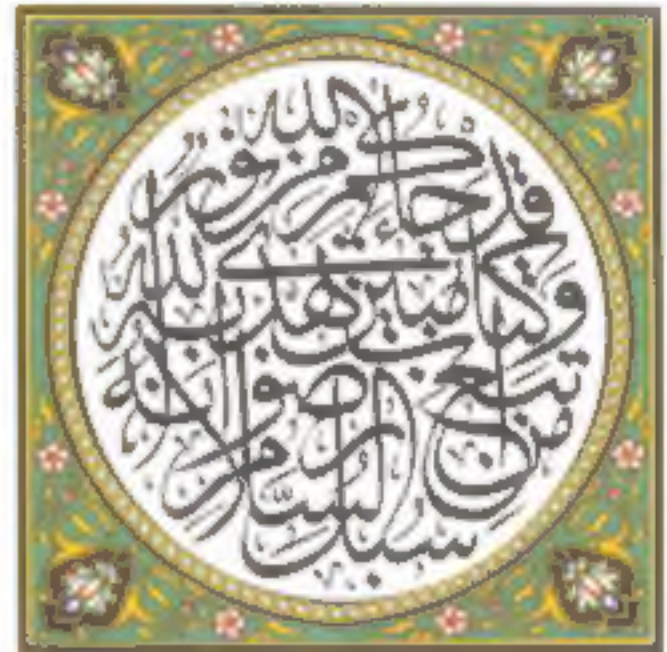 قد جاءكم من الله نور وكتاب مبين يهدي به الله من اتبع رضوانه سبل السلام